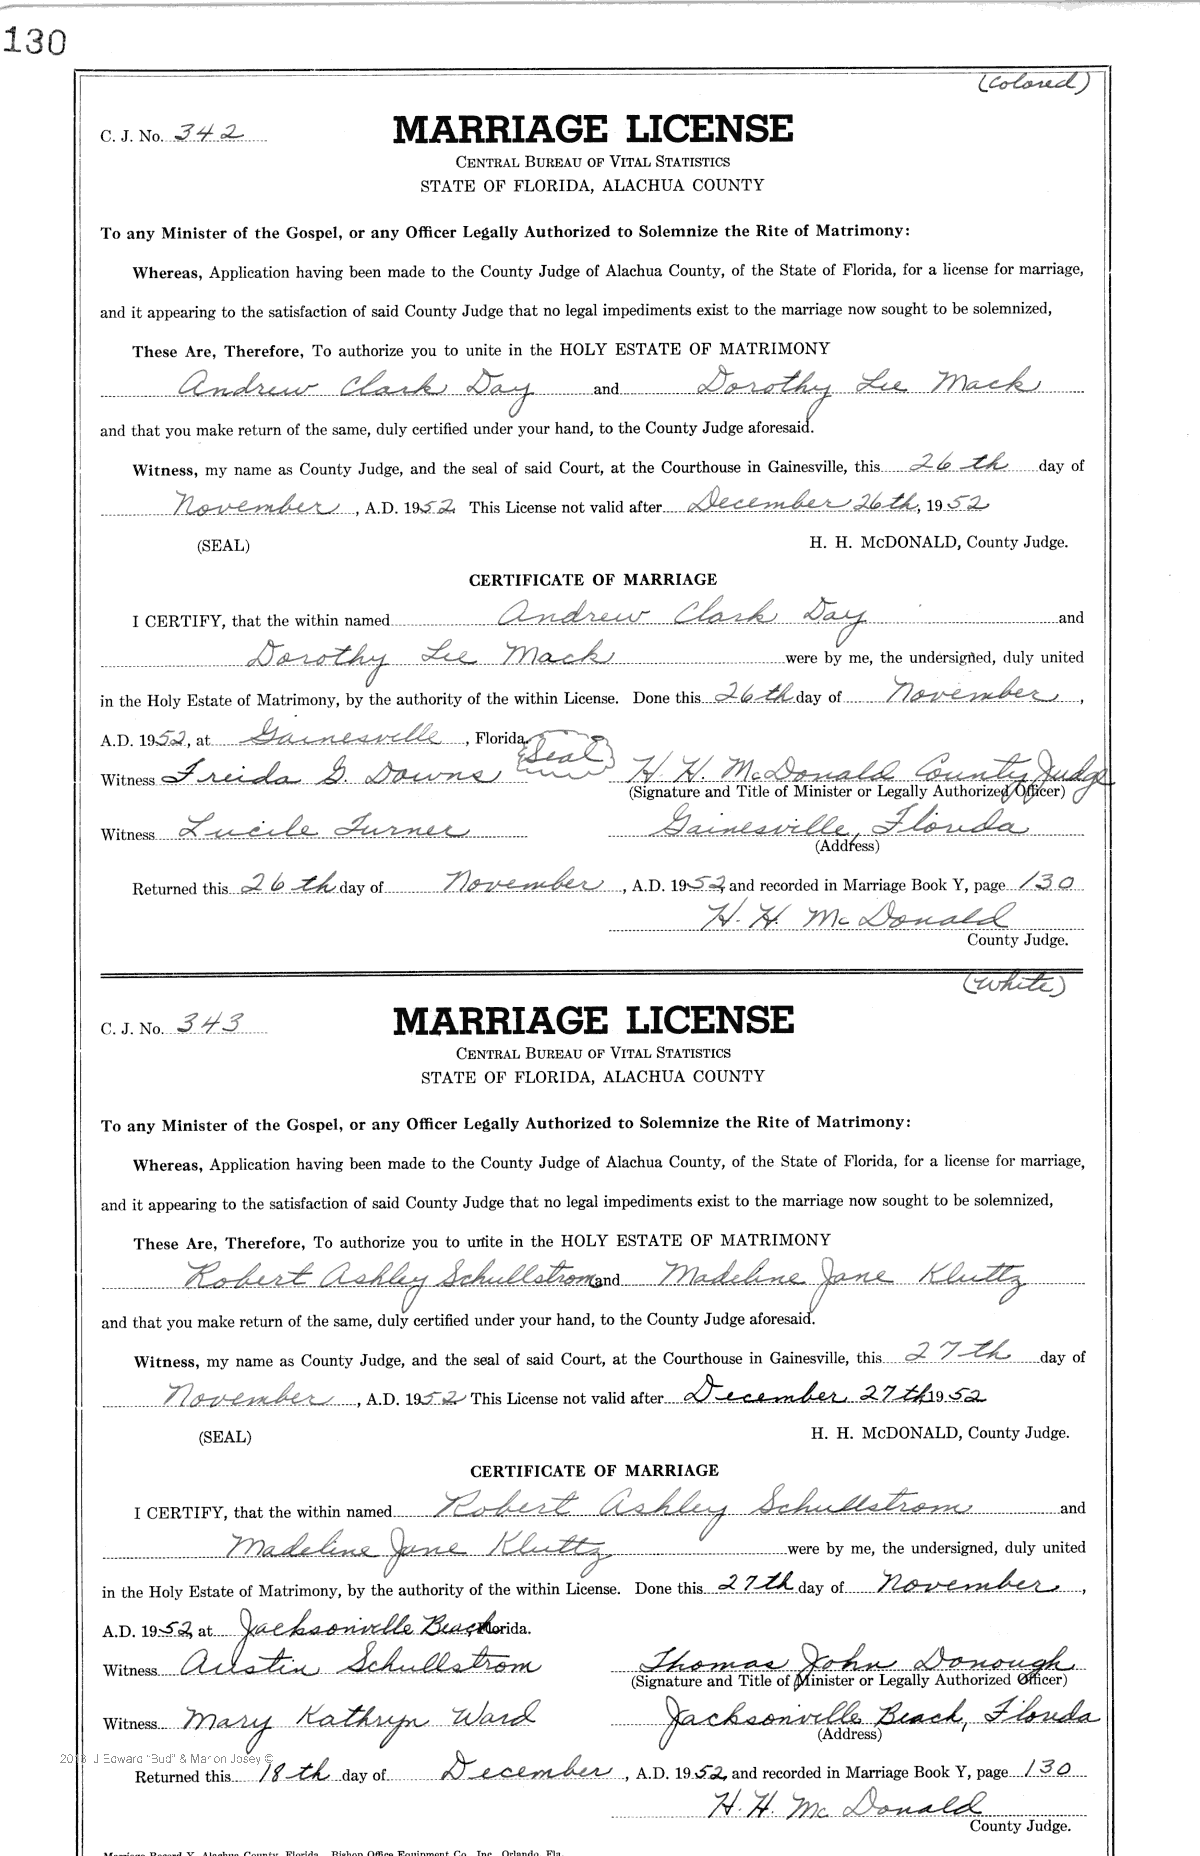 130
(Colored)
C. J. No. 342
MARRIAGE LICENSE
CENTRAL BUREAU OF VITAL STATISTICS
STATE OF FLORIDA, ALACHUA COUNTY
To any Minister of the Gospel, or any Officer Legally Authorized to Solemnize the Rite of Matrimony:
Whereas, Application having been made to the County Judge of Alachua County, of the State of Florida, for a license for marriage,
and it appearing to the satisfaction of said County Judge that no legal impediments exist to the marriage now sought to be solemnized,
These Are, Therefore, To authorize you to unite in the HOLY ESTATE OF MATRIMONY
Andrew Clark Day and Dorothy Lee Mack
and that you make return of the same, duly certified under your hand, to the County Judge aforesaid.
Witness, my name as County Judge, and the seal of said Court, at the Courthouse in Gainesville, this 26th day of
November, A.D. 1952 This License not valid after December 26th, 1952
(SEAL) H. H. McDONALD, County Judge.
CERTIFICATE OF MARRIAGE
I CERTIFY, that the within named Andrew Clark Day and
Dorothy Lee Mack were by me, the undersigned, duly united
in the Holy Estate of Matrimony, by the authority of the within License. Done this 26th day of November,
A.D. 1952, at Gainesville, Florida.
Seal
Witness Freida G. Downs H. H. McDonald County Judge
(Signature and Title of Minister or Legally Authorized Officer)
Witness Lucile Turner Gainesville, Florida
(Address)
Returned this 26th day of November, A.D. 1952, and recorded in Marriage Book Y, page 130
H. H. McDonald
County Judge.
(White)
C. J. No. 343
MARRIAGE LICENSE
CENTRAL BUREAU OF VITAL STATISTICS
STATE OF FLORIDA, ALACHUA COUNTY
To any Minister of the Gospel, or any Officer Legally Authorized to Solemnize the Rite of Matrimony:
Whereas, Application having been made to the County Judge of Alachua County, of the State of Florida, for a license for marriage,
and it appearing to the satisfaction of said County Judge that no legal impediments exist to the marriage now sought to be solemnized,
These Are, Therefore, To authorize you to unite in the HOLY ESTATE OF MATRIMONY
Robert Ashley Schullstrom and Madeline Jane Kluttz
and that you make return of the same, duly certified under your hand, to the County Judge aforesaid.
Witness, my name as County Judge, and the seal of said Court, at the Courthouse in Gainesville, this 27th day of
November, A.D. 1952 This License not valid after December 27th, 1952
(SEAL) H. H. McDONALD, County Judge.
CERTIFICATE OF MARRIAGE
I CERTIFY, that the within named Robert Ashley Schullstrom and
Madeline Jane Kluttz were by me, the undersigned, duly united
in the Holy Estate of Matrimony, by the authority of the within License. Done this 27th day of November,
A.D. 1952, at Jacksonville Beach, Florida.
Witness Austin Schullstrom Thomas John Donough
(Signature and Title of Minister or Legally Authorized Officer)
Witness Mary Kathryn Ward Jacksonville Beach, Florida
(Address)
2018 J Edward "Bud" & Marion Josey ©
Returned this 18th day of December, A.D. 1952, and recorded in Marriage Book Y, page 130
H. H. McDonald
County Judge.
Marriage Record Y, Alachua County, Florida. Bishop Office Equipment Co., Inc., Orlando, Fla.